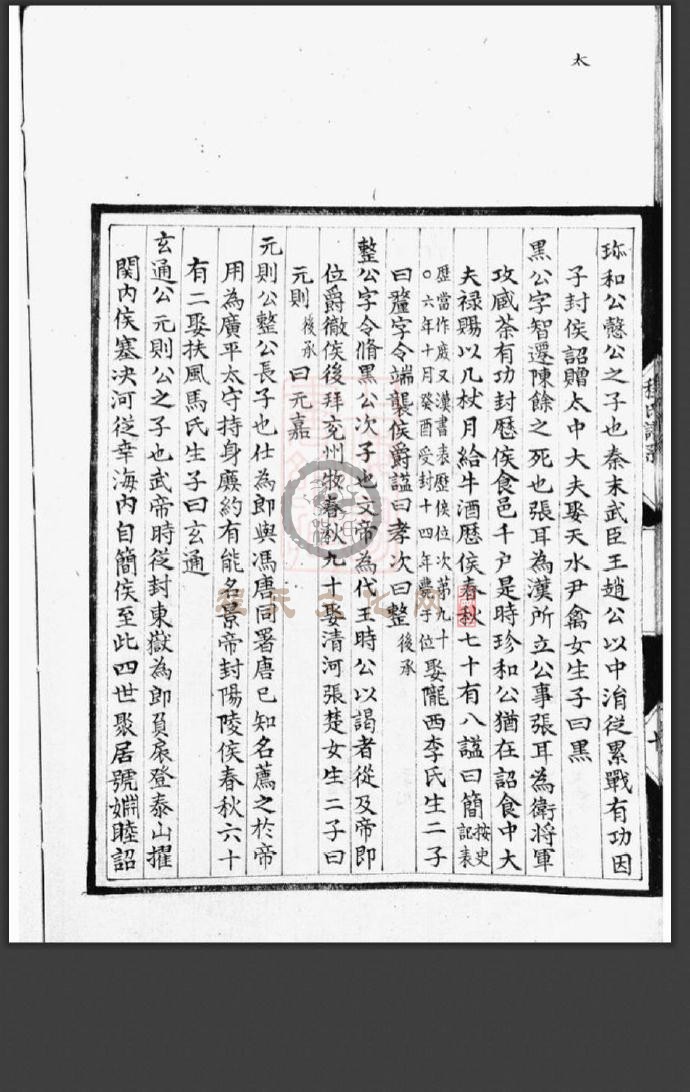 太
珎和公慤公之子也秦末武臣王趙公以中涓從累戰有功因
子封侯詔贈太中大夫娶天水尹禽女生子曰黑
黒公字智遷陳餘之死也張耳為漢所立公事張耳為衛將軍
攻臧荼有功封歷侯食邑千户是時珍和公猶在詔食中大
夫禄賜以几杖月給牛酒歷侯春秋七十有八謚曰簡按史記表
歷當作庴又漢書表歷侯位次第九十
○六年十月癸酉受封十四年薨子位娶隴西李氏生二子
曰釐字令端襲侯爵謚曰孝次曰整後承
整公字令脩黒公次子也文帝為代王時公以謁者從及帝即
位爵徹侯後拜兗州牧春秋九十娶清河張楚女生二子曰
元則後承曰元嘉
元則公整公長子也仕為郎與馮唐同署唐已知名薦之於帝
用為廣平太守持身廉約有能名景帝封陽陵侯春秋六十
有二娶扶風馬氏生子曰玄通
玄通公元則公之子也武帝時從封東嶽為郎負扆登泰山擢
関内侯塞决河從幸海内自簡侯至此四世聚居號婣睦詔
程氏譜系